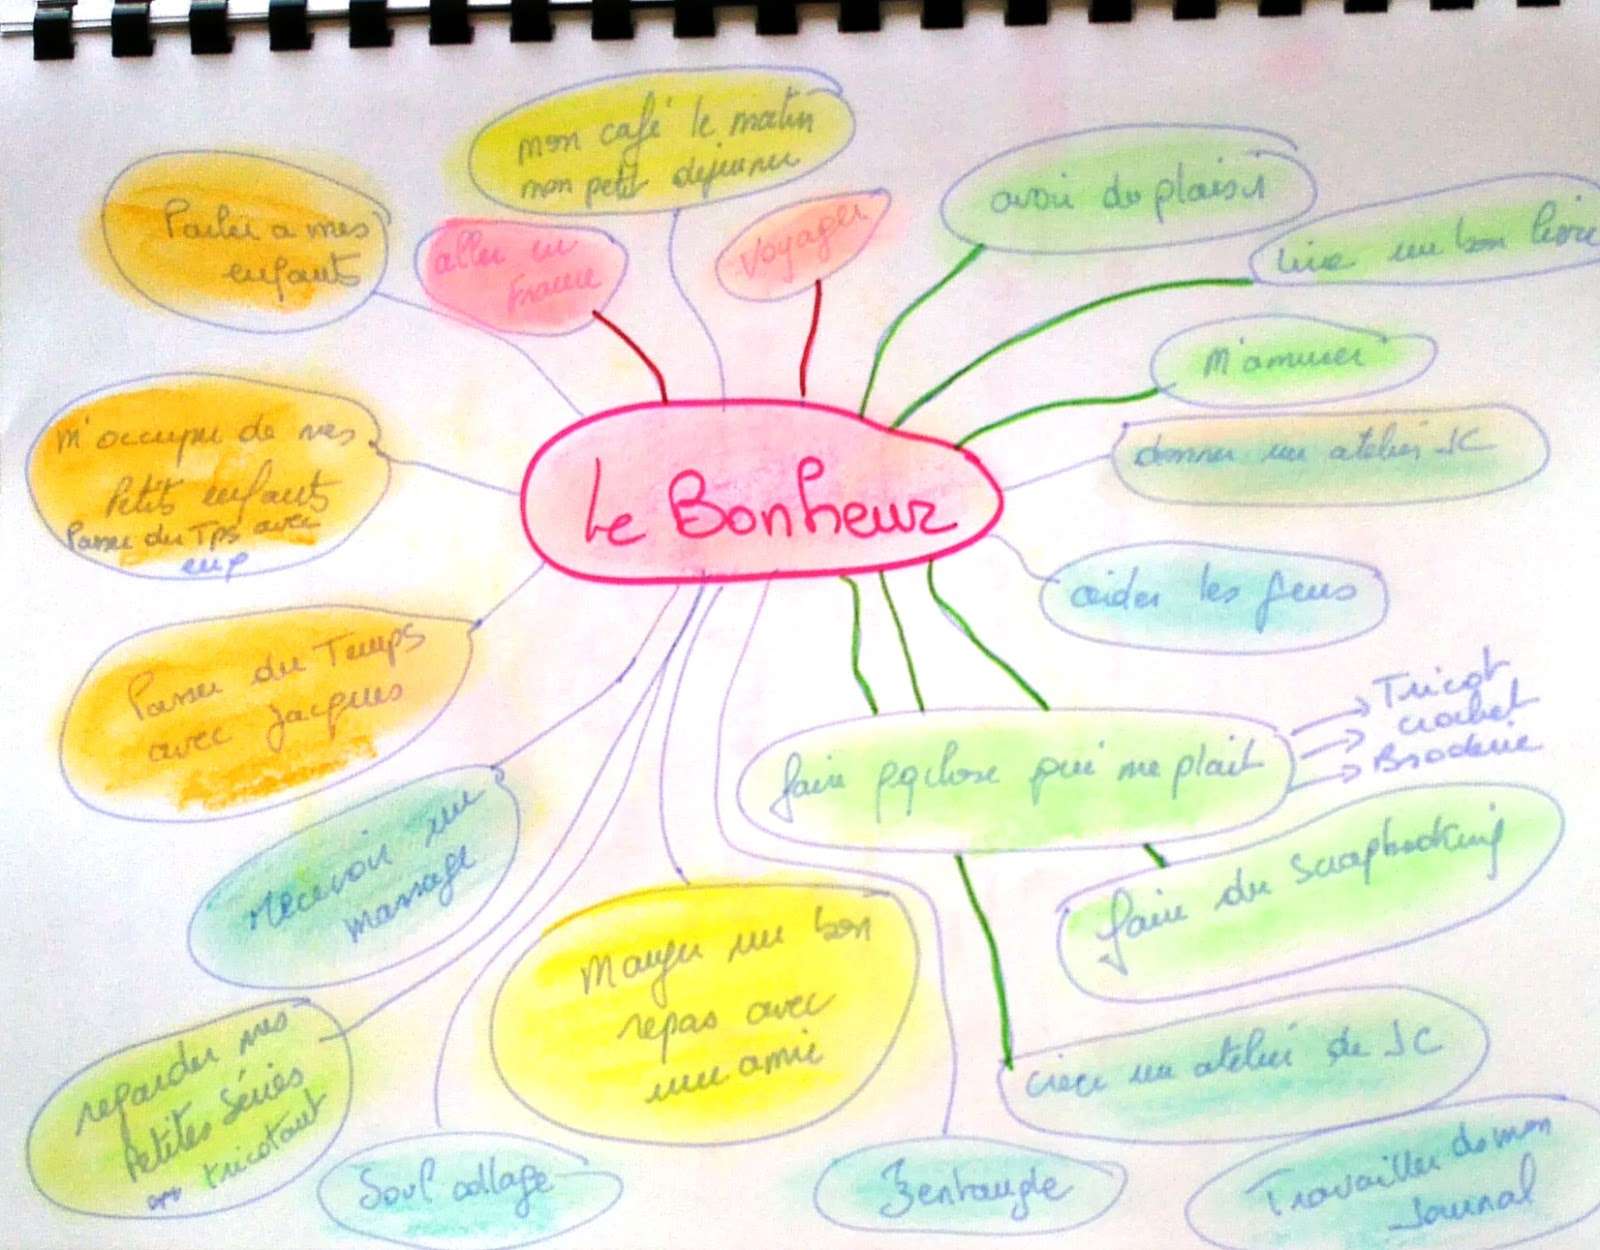 mon café le matin
mon petit dejeuner
Parler a mes
enfants
aller en
France
Voyager
avoir du plaisir
Lire un bon livre
M'amuser
m'occuper de mes
Petits enfants
Passer du Tps avec
eux
donner un atelier JC
Le Bonheur
aider les gens
Passer du Temps
avec Jacques
faire pqchose qui me plait
Tricot
crochet
Broderie
Recevoir un
massage
faire du Scrapbooking
Manger un bon
repas avec
une amie
regarder mes
Petites Séries
en tricotant
créer un atelier de JC
Soul collage
Zentangle
Travailler ds mon
Journal